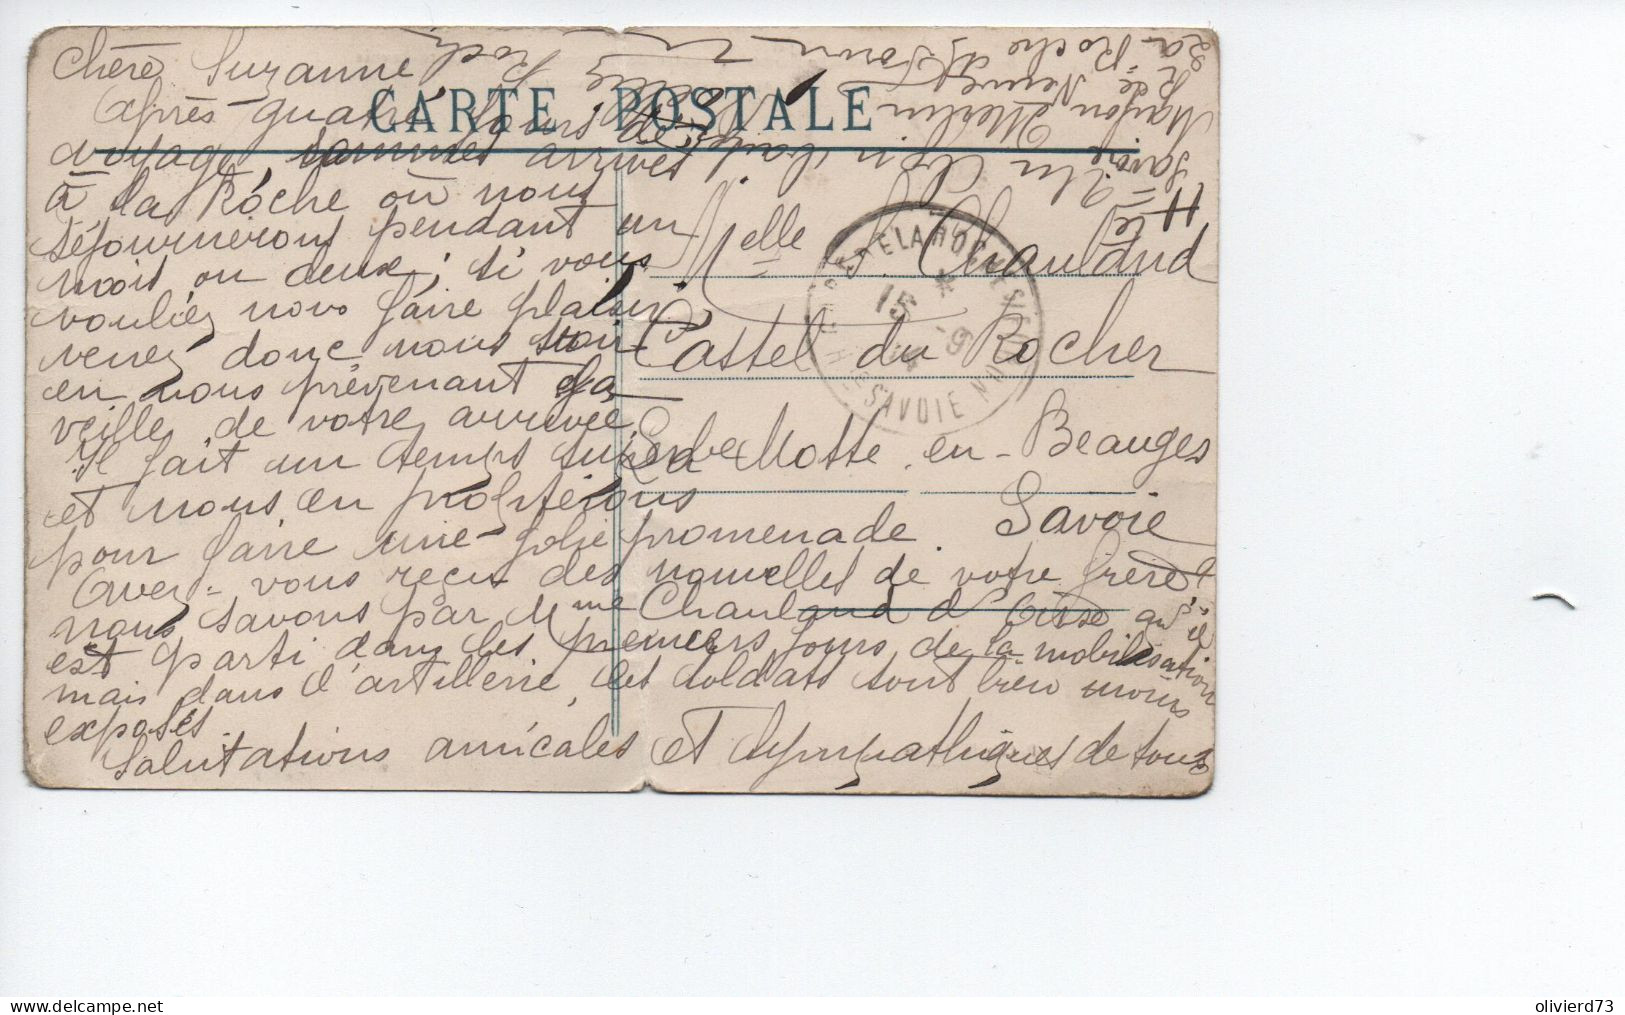 Chère Suzanne,
CARTE POSTALE
Après quatre jours de
voyage, sommes arrivés
à la Roche où nous
séjournerons pendant un
mois ou deux; si vous
vouliez nous faire plaisir,
venez donc nous voir
en nous prévenant la
veille de votre arrivée.
Il fait un temps superbe
et nous en profiterons
pour faire une jolie promenade.
Avez-vous reçu des nouvelles de votre frère?
nous savons par Mme Chauland d'        qu'il
est parti dans les premiers jours de la mobilisation
mais dans l'artillerie, les soldats sont bien moins
exposés
Salutations amicales et sympathiques de tous
Melle S. Chauland
Castel du Rocher
La Motte-en-Beauges
Savoie
La Roche s/ Foron
Rue Neuve
Maison Merlin
Hte Savoie
DE LA ROCHE
15 -9
SAVOIE
olivierd73